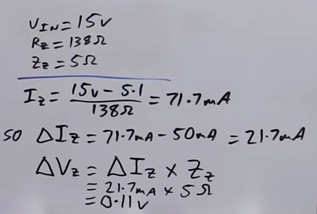 VIN = 15V
Rz = 138Ω
Zz = 5Ω
Iz = 15V - 5.1 / 138Ω = 71.7mA
SO ΔIz = 71.7mA - 50mA = 21.7mA
ΔVz = ΔIz × Zz
= 21.7mA × 5Ω
= 0.11V